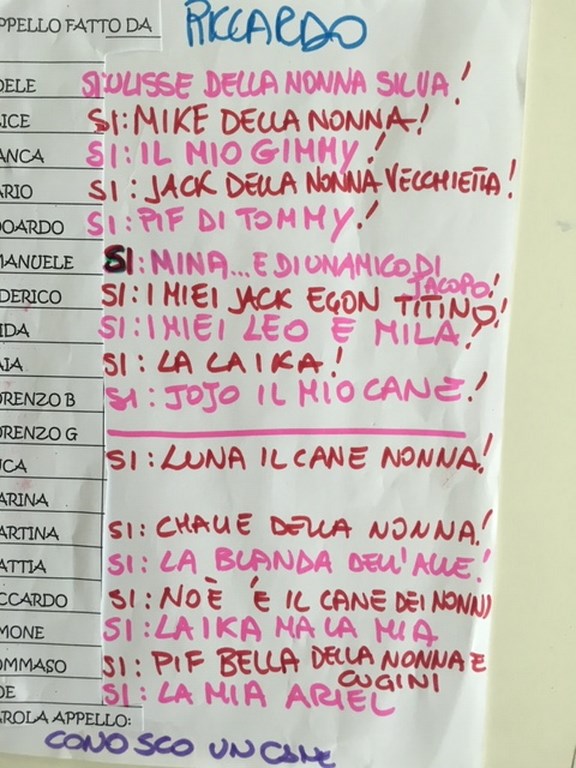 PPELLO FATTO DA RICCARDO
DELE SI: ULISSE DELLA NONNA SILVA!
ICE SI: MIKE DELLA NONNA!
ANCA SI: IL MIO GIMMY!
ARIO SI: JACK DELLA NONNA VECCHIETTA!
DOARDO SI: PIF DI TOMMY!
MANUELE SI: MINA... E DI UN AMICO DI
JACOPO!
DERICO SI: I MIEI JACK EGON TITINO!
IDA SI: I MIEI LEO E MILA!
AIA SI: LA LAIKA!
ORENZO B SI: JOJO IL MIO CANE!
ORENZO G
UCA SI: LUNA IL CANE NONNA!
ARINA
ARTINA SI: CHALIE DELLA NONNA!
ATTIA SI: LA BLANDA DELL'ALLE!
CCARDO SI: NOÈ È IL CANE DEI NONNI
MONE SI: LAIKA MA LA MIA
OMMASO SI: PIF BELLA DELLA NONNA E
CUGINI
OE SI: LA MIA ARIEL
AROLA APPELLO:
CONOSCO UN CANE